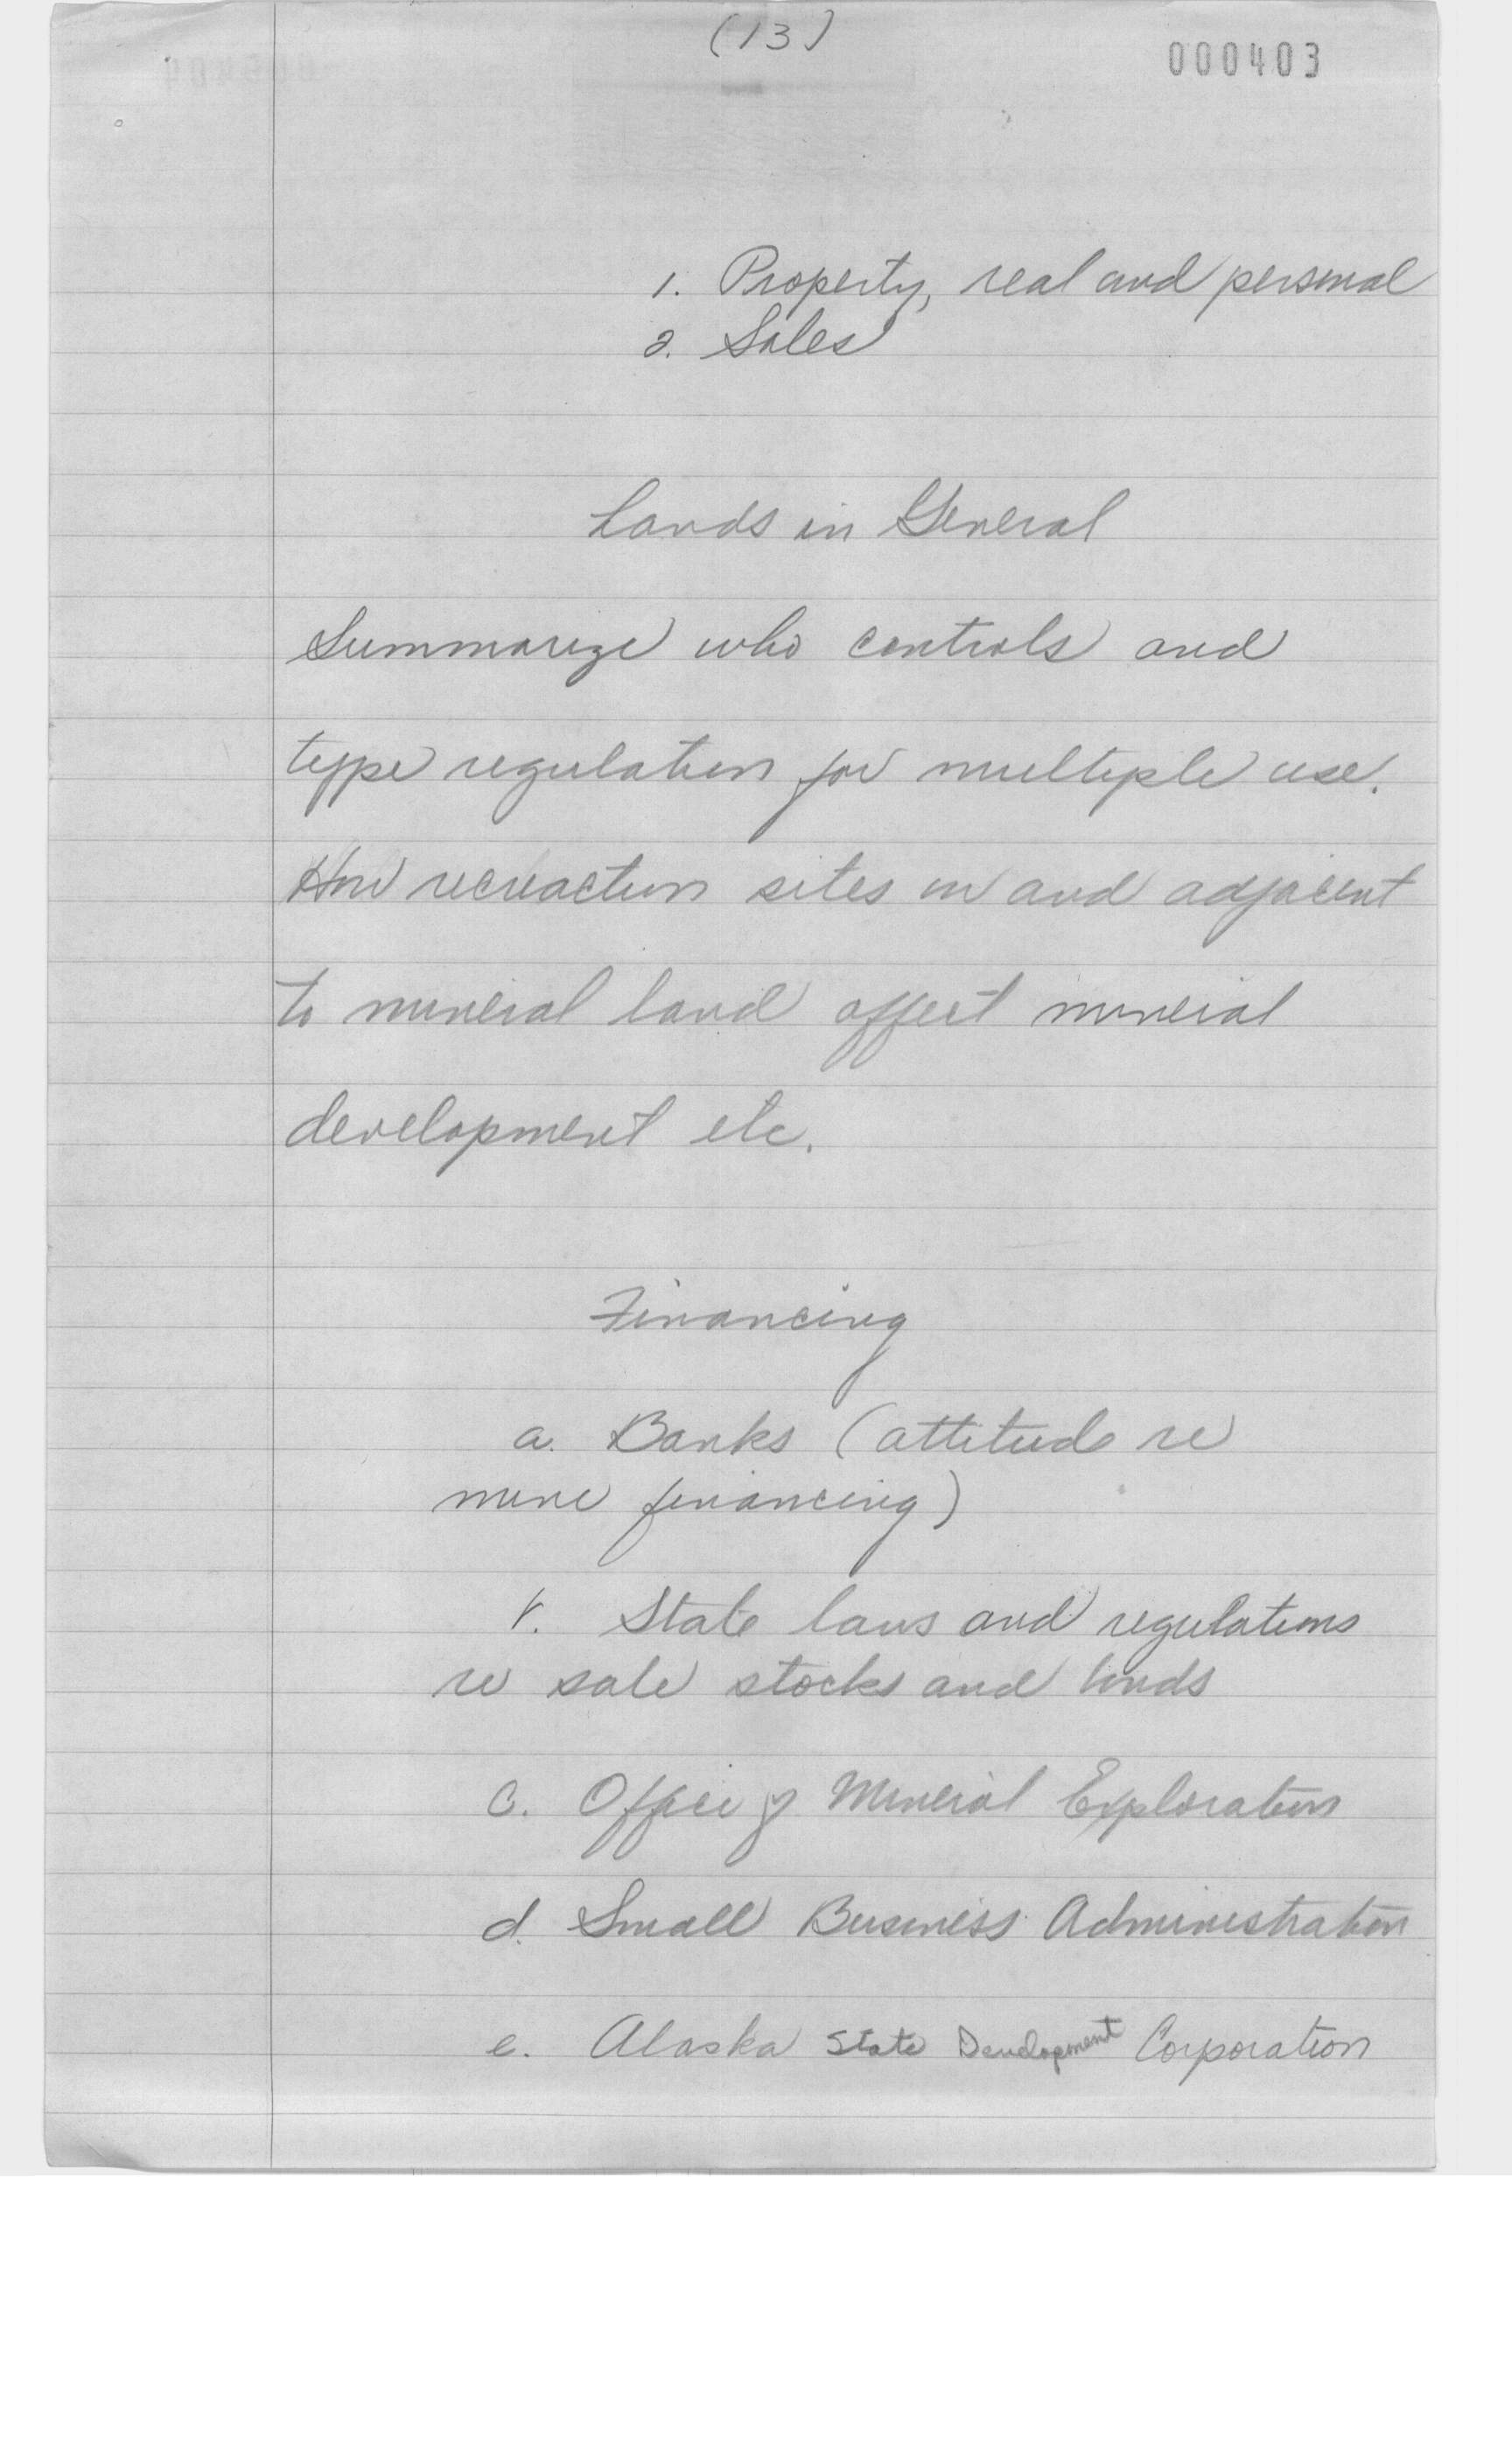 (13)
000403
1. Property, real and personal
2. Sales
Lands in General
Summarize who controls and
type regulation for multiple use.
How recreaction sites on and adjacent
to mineral land affect mineral
development etc.
Financing
a. Banks (attitude re
mine financing)
b. State laws and regulations
re sale stocks and bonds
c. Office of Mineral Exploration
d. Small Business Administration
e. Alaska State Development Corporation